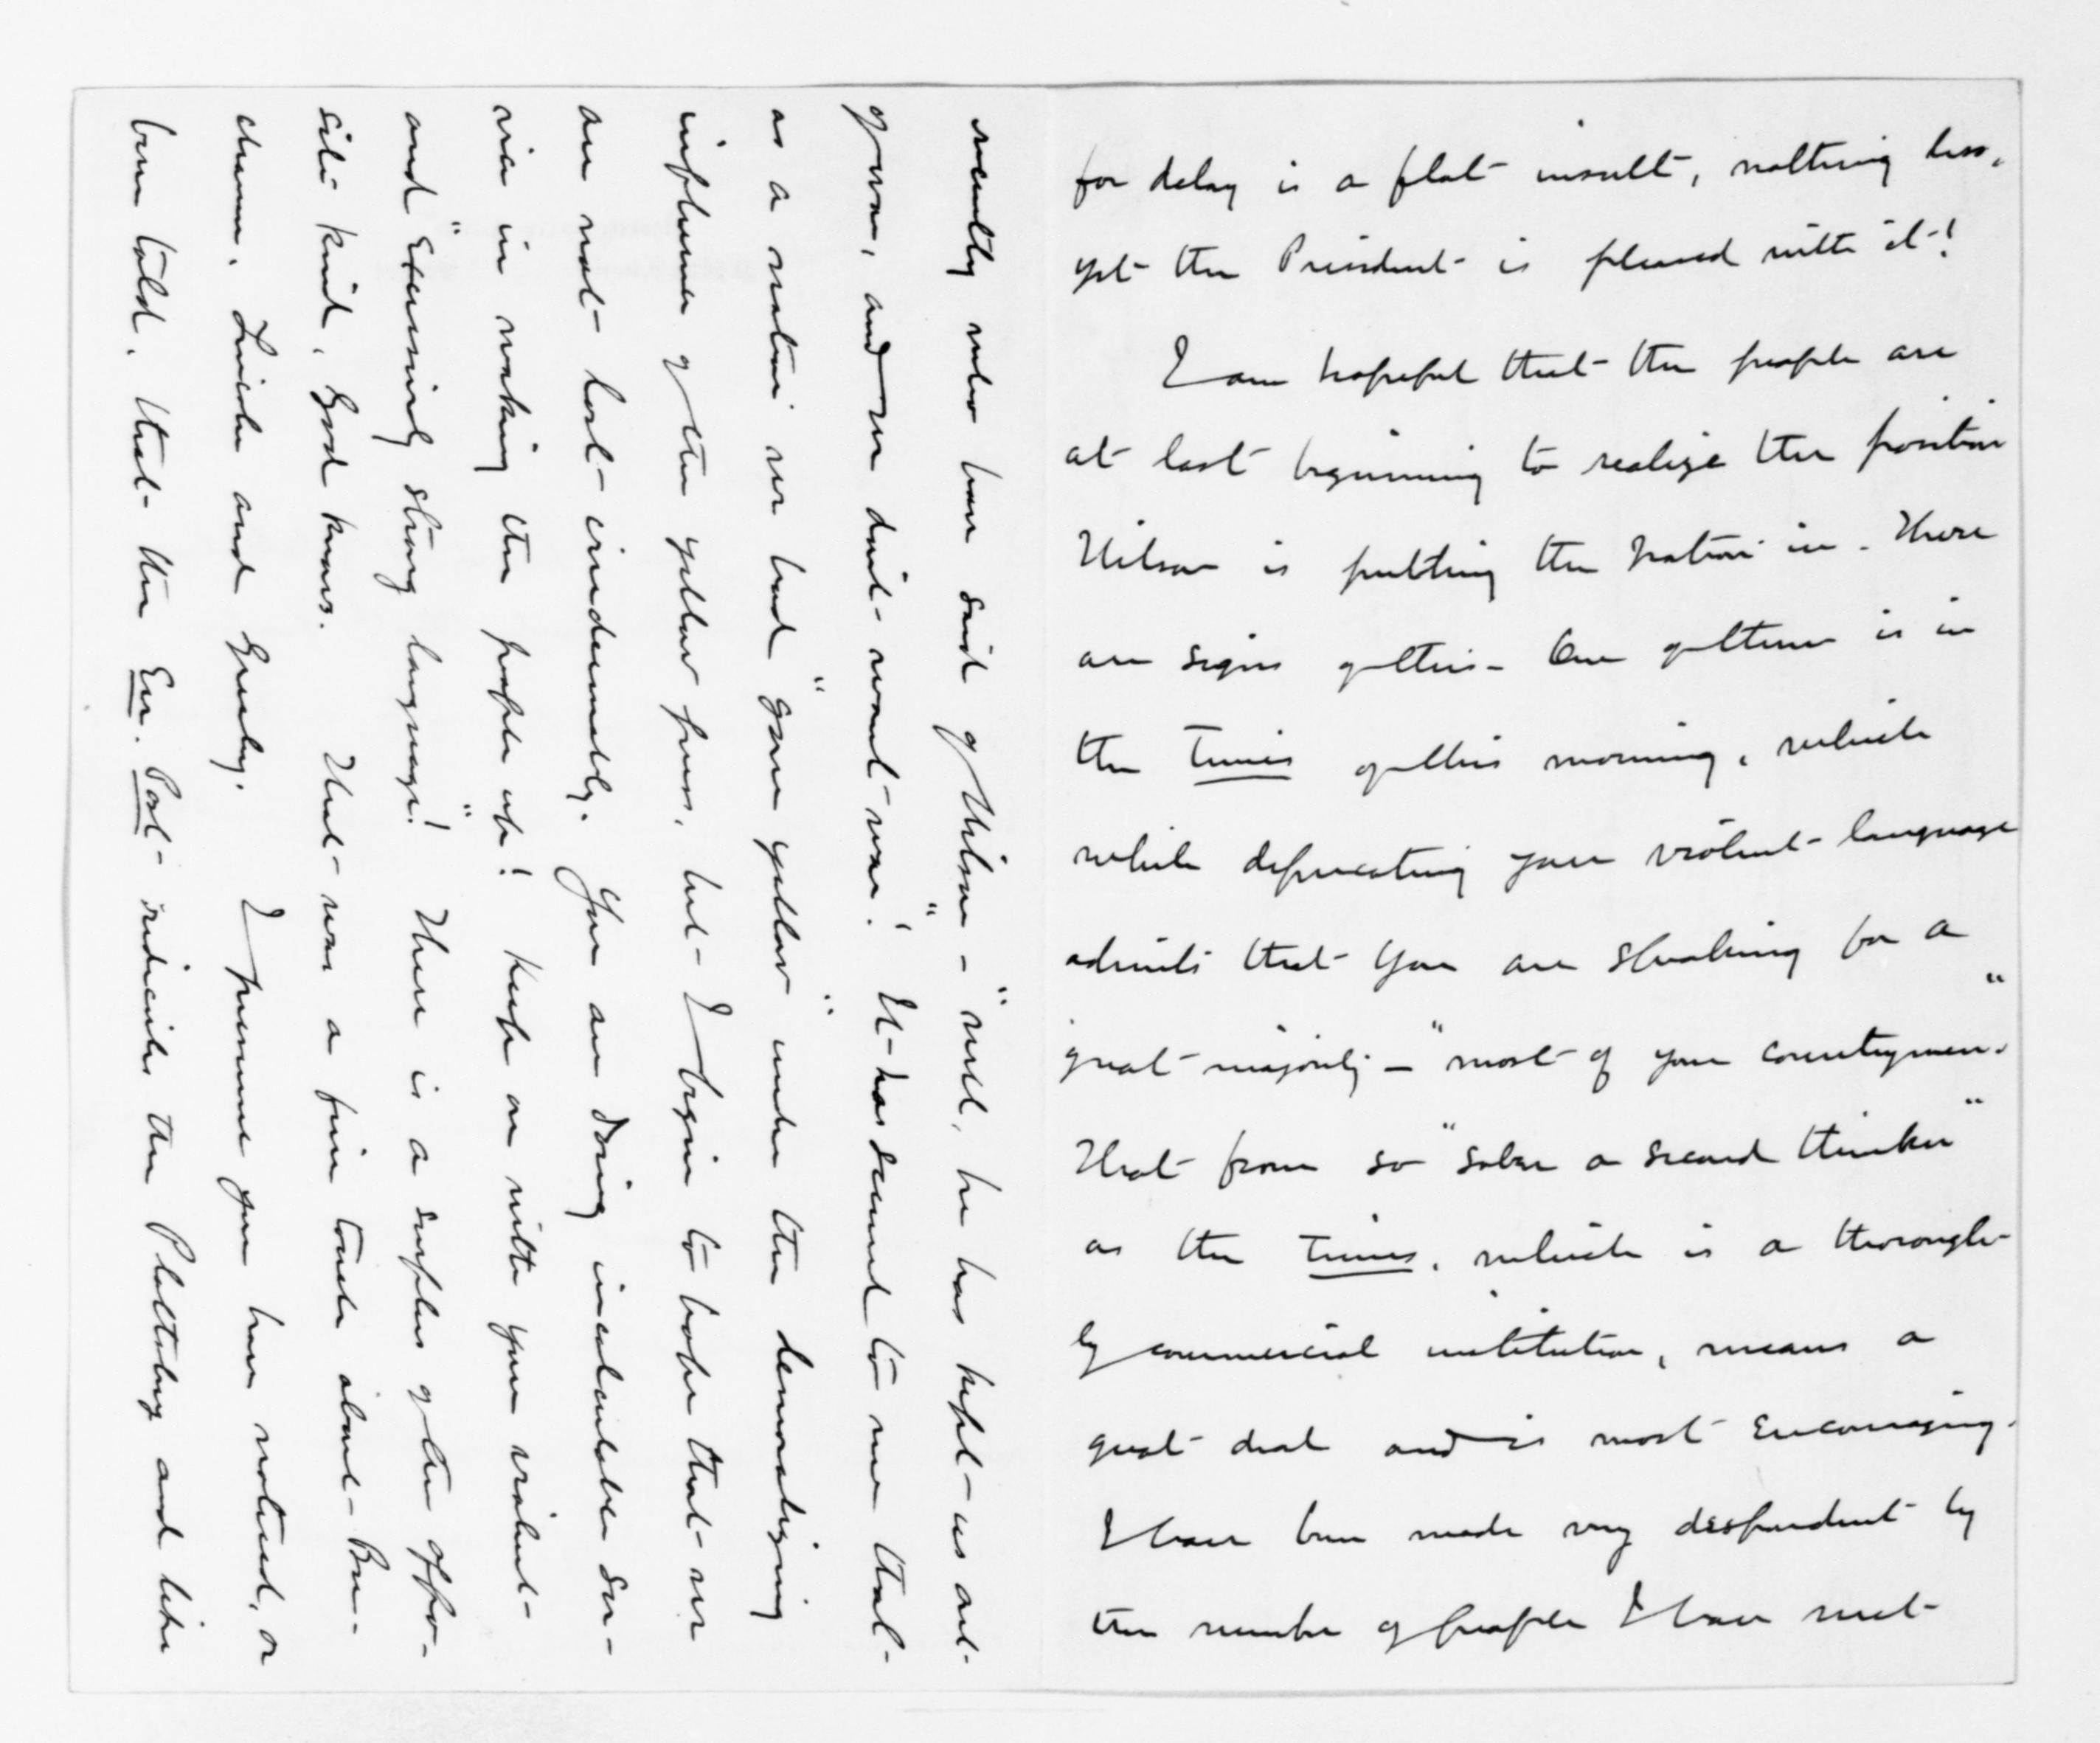 for delay is a flat insult, nothing less,
yet the President is pleased with it!
I am hopeful that the people are
at last beginning to realize the position
Wilson is putting the Nation in. There
are signs of this - One of them is in
the Times of this morning, which
while deprecating your violent language
admits that you are speaking for a
great majority - "most of your countrymen."
That from so "sober a second thinker"
as the Times, which is a thorough-
ly commercial institution, means a
great deal and is most encouraging.
I have been made very despondent by
the number of people I have met
recently who have said of Wilson - "well, he has kept us out
of war, and we don't want war." It has seemed to me that
as a nation we had "gone yellow" under the demoralizing
influence of the yellow press, but I begin to hope that we
are not lost irredeemably. You are doing incalculable ser-
vice in waking the people up! Keep on with your violent
and "extensively strong language"! There is a surplus of the oppo-
site kind, God knows. That was a fine touch about Bu-
chanan, Lincoln and Greeley. I presume you have noticed, or
been told, that the Ev. Post ridicules the Plattsburg and like